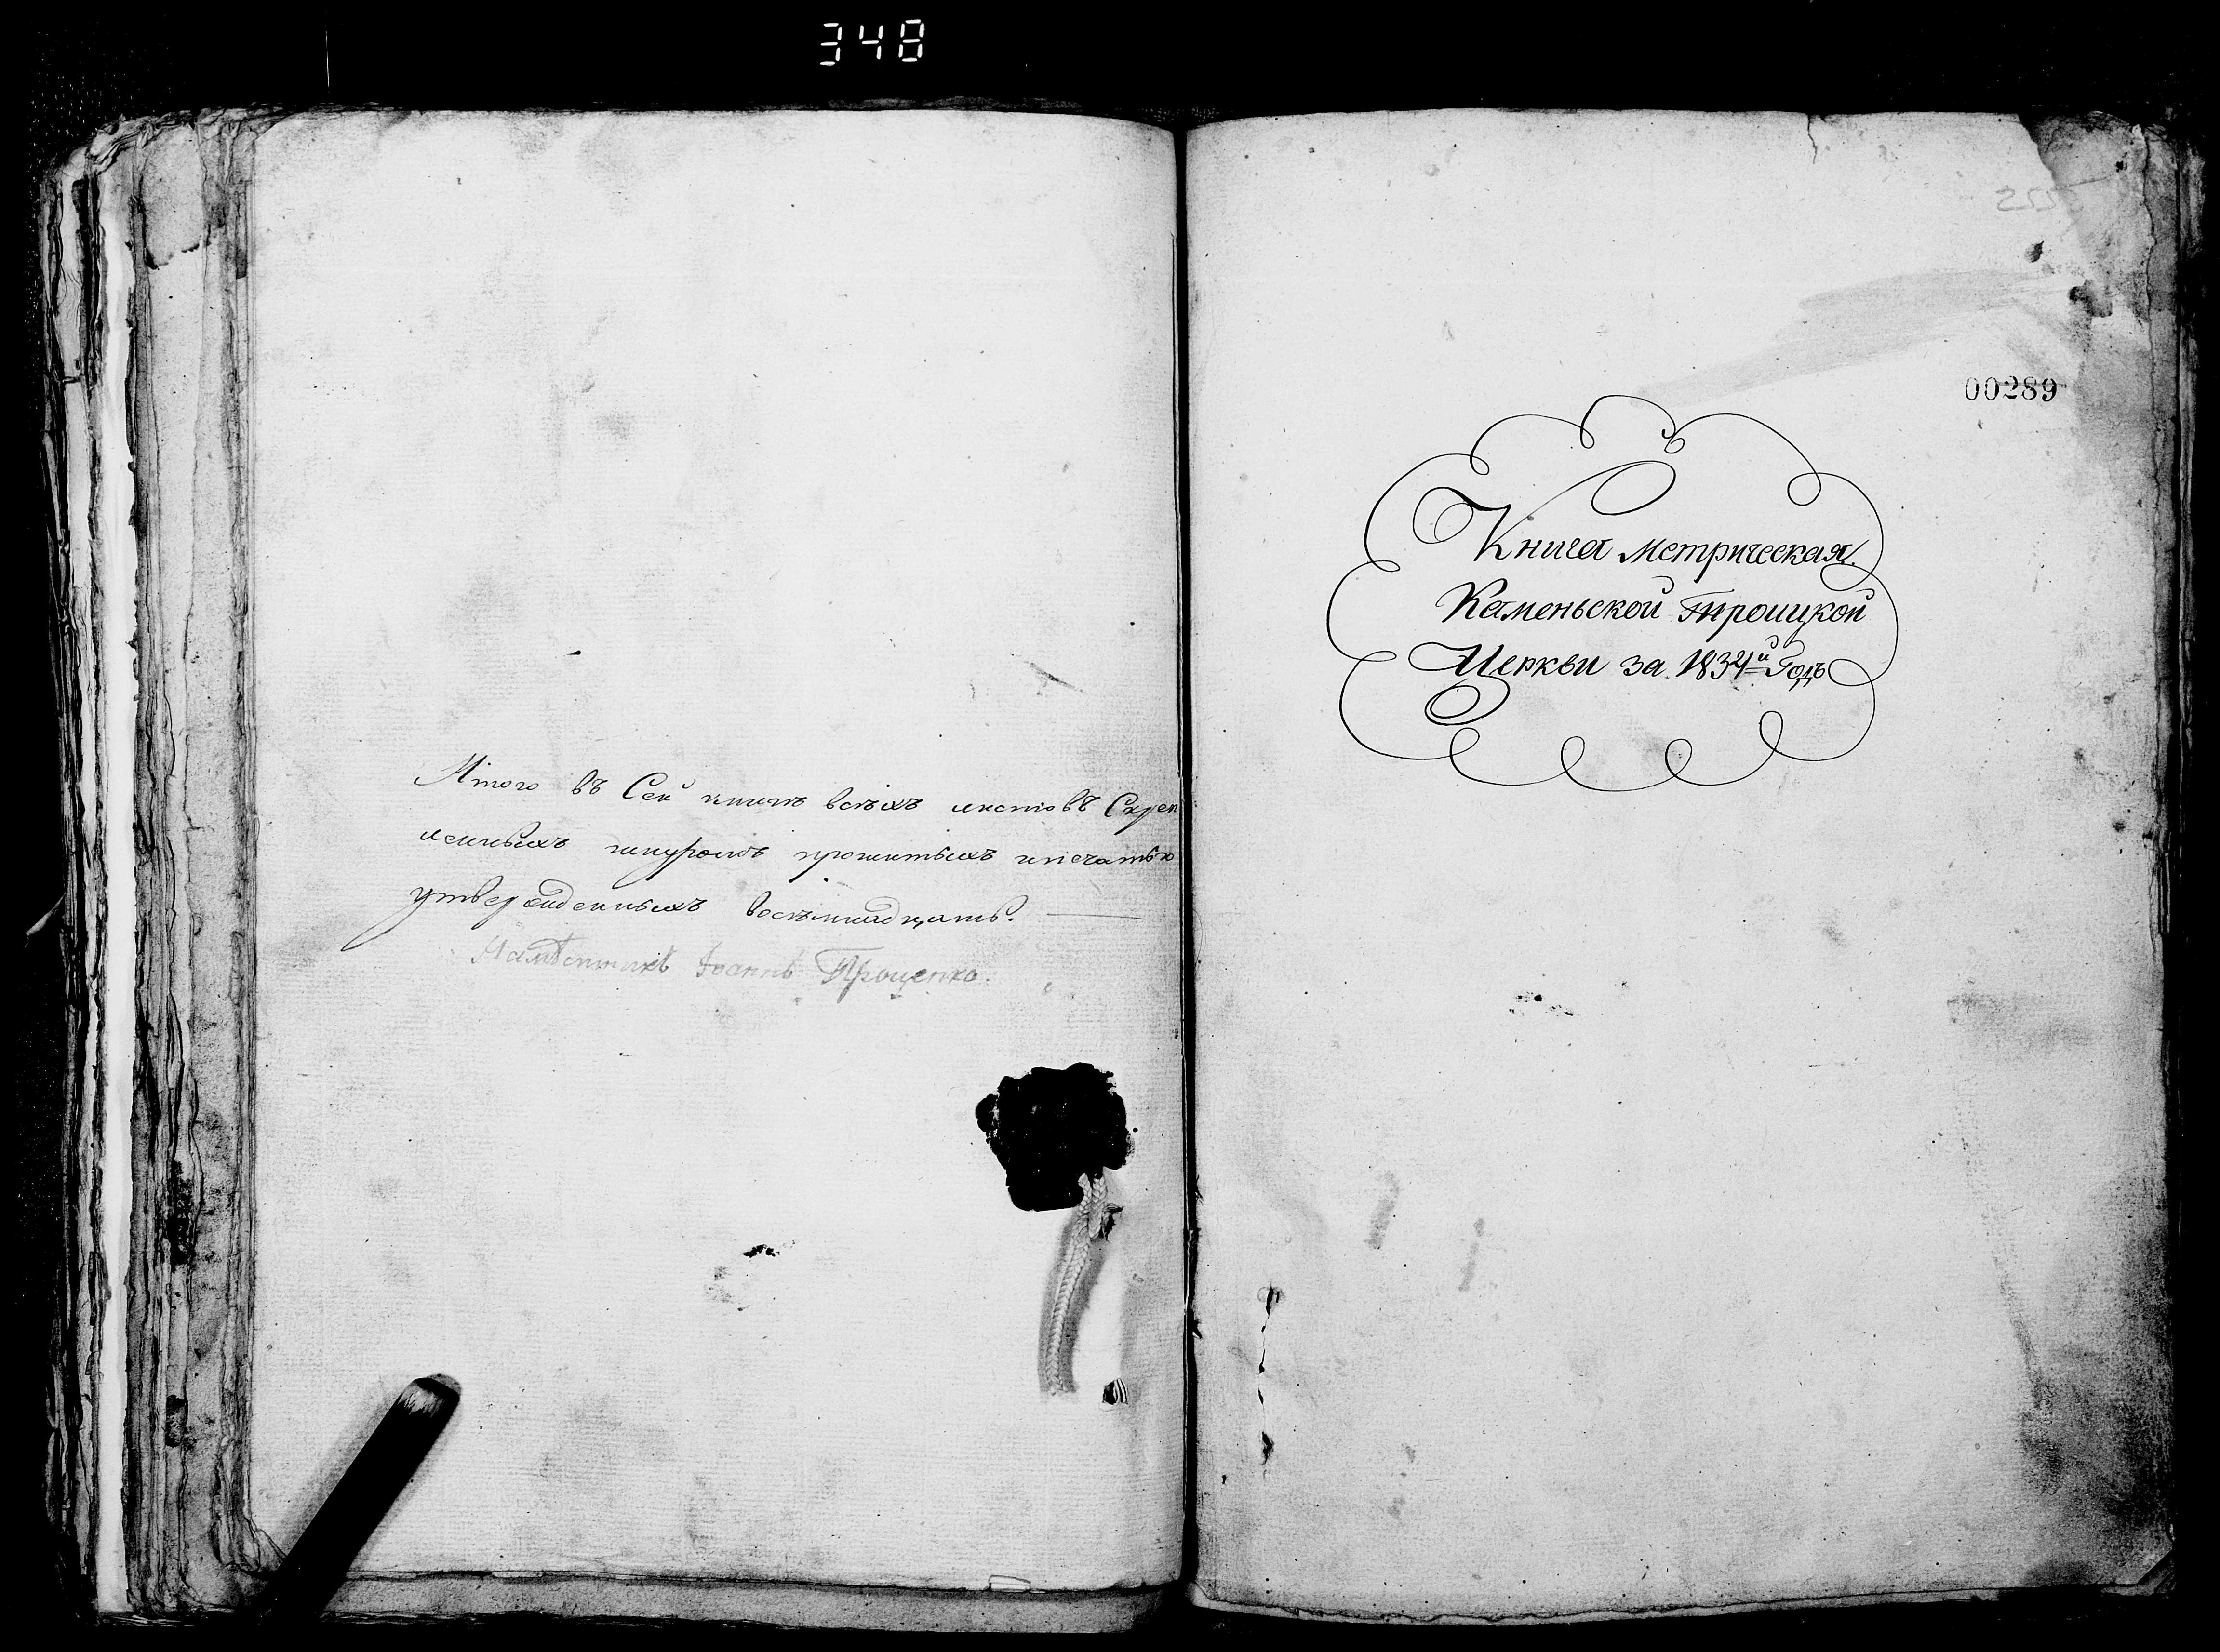 348
Итого въ Сей книгѣ всѣхъ листовъ Скреп
ленныхъ шнуромъ прошитыхъ и печатью
утвержденныхъ восѣмнадцать.
Намѣстникъ Іоаннъ Проценко.
00289
Книга Метрическая
Каменьской Троицкой
Церкви за 1834й Годъ